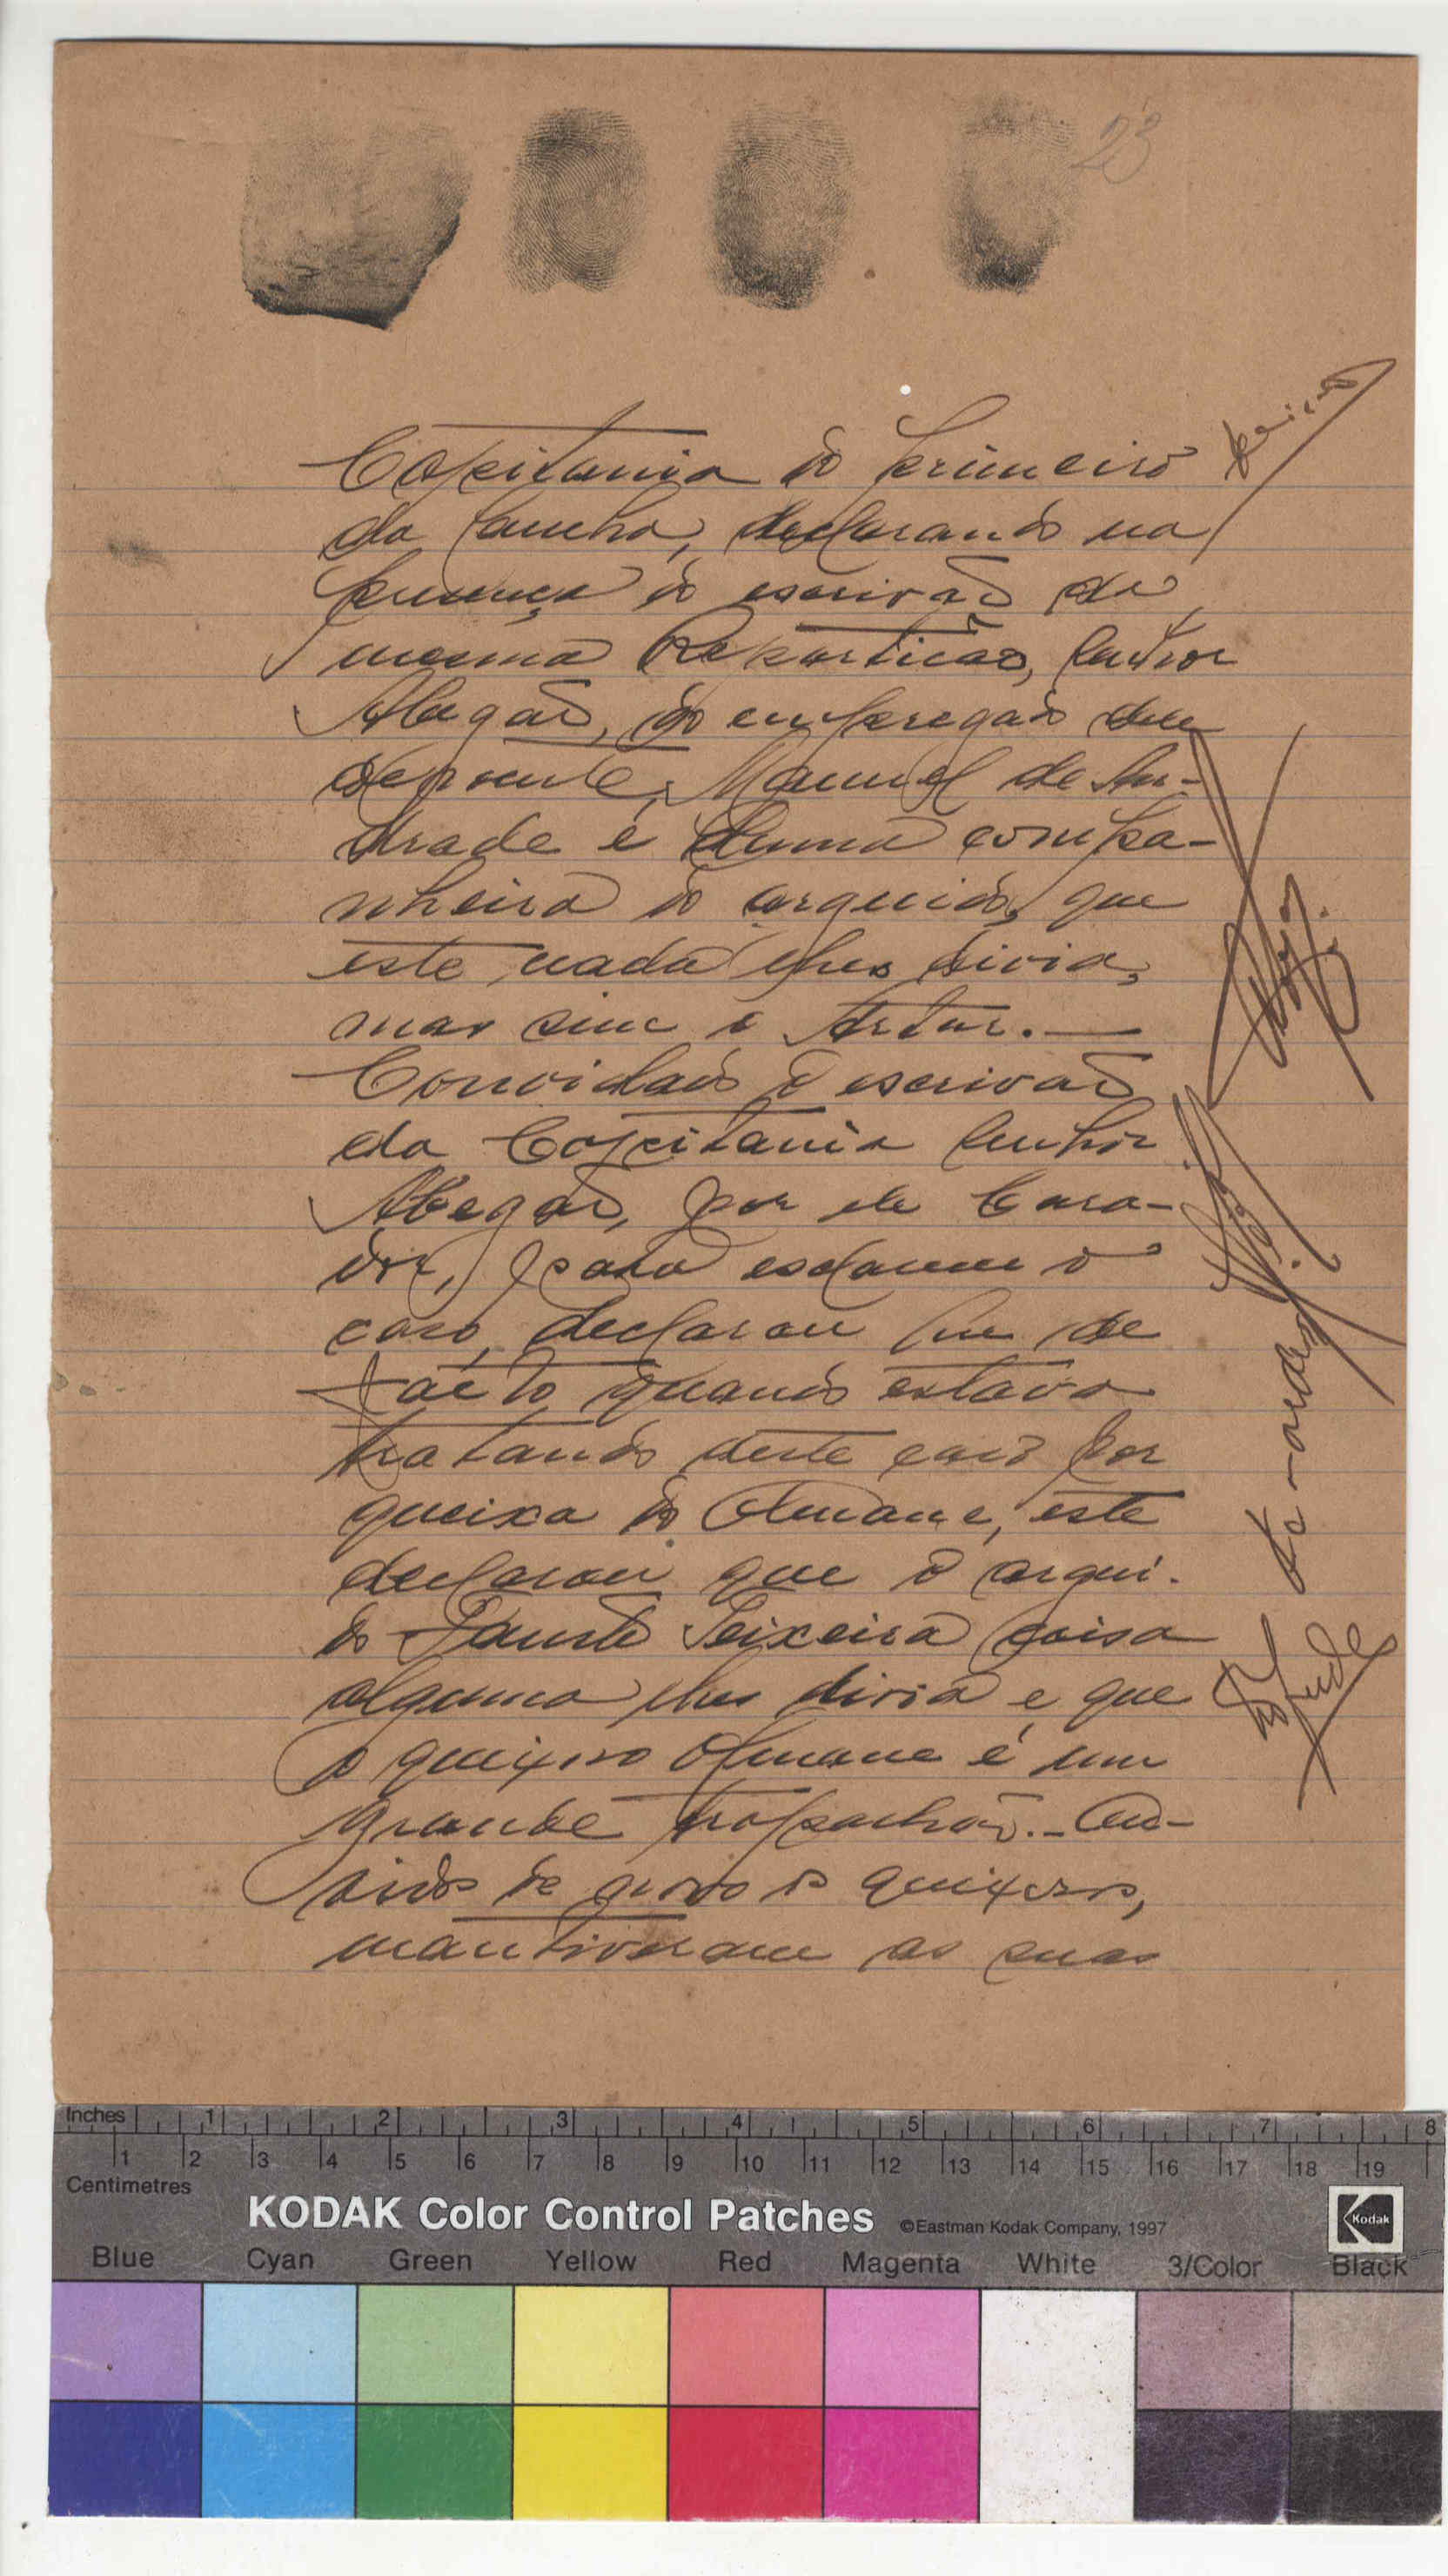 23
Capitania do primeiro
da lancha, declarando na
presença do escrivão da
mesma Repartição, senhor
Abegão, do empregado dele
depoente, Manuel de An-
drade e duma compa-
nheira do arguido, que
este nada lhes divia,
mas sim o Artur.
Convidado o escrivão
da Capitania senhor
Abegão, por ele Cara-
dor, para esclarecer o
caso, declarou que de
facto quando estava
tratando deste caso por
queixa do Amane, este
declarou que o argui-
do Fausto Teixeira coisa
alguma lhes divia e que
o queixoso Amane é um
grande trapalhão. - Ou-
vidos de novo os queixosos,
mantiveram as suas
Inches 1 2 3 4 5 6 7 8
1 2 3 4 5 6 7 8 9 10 11 12 13 14 15 16 17 18 19
Centimetres
KODAK Color Control Patches ©Eastman Kodak Company, 1997 Kodak
Blue Cyan Green Yellow Red Magenta White 3/Color Black